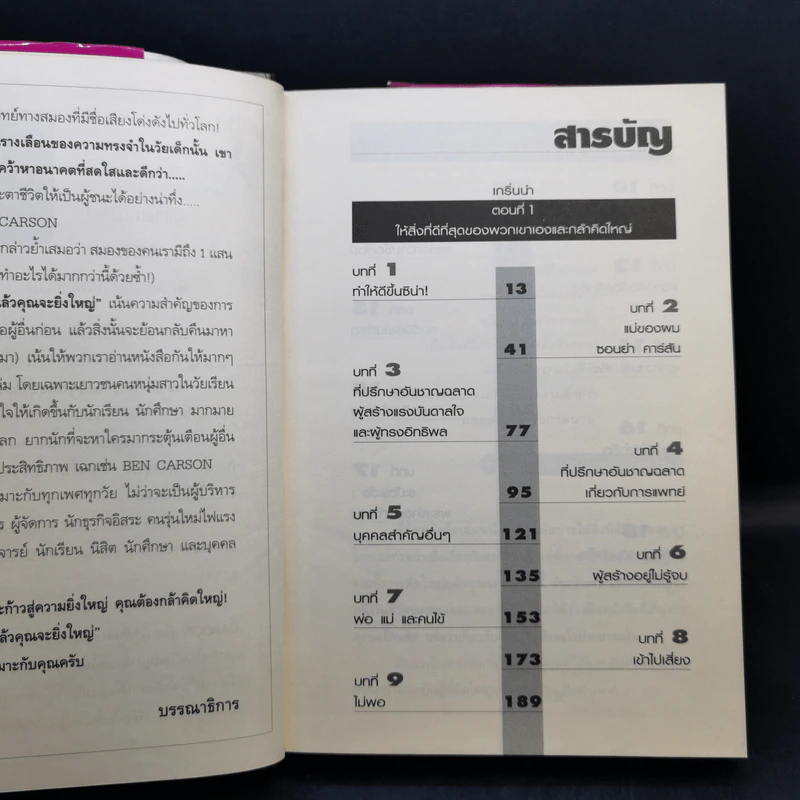 ทย์ทางสมองที่มีชื่อเสียงโด่งดังไปทั่วโลก!
รางเลือนของความทรงจำในวัยเด็กนั้น เขา
คว้าหาอนาคตที่สดใสและดีกว่า.....
ะตาชีวิตให้เป็นผู้ชนะได้อย่างน่าทึ่ง.....
CARSON
กล่าวย้ำเสมอว่า สมองของคนเรามีถึง 1 แสน
ทำอะไรได้มากกว่านี้ด้วยซ้ำ!)
ล้วคุณจะยิ่งใหญ่" เน้นความสำคัญของการ
อผู้อื่นก่อน แล้วสิ่งนั้นจะย้อนกลับคืนมาหา
มา) เน้นให้พวกเราอ่านหนังสือกันให้มากๆ
ล่ม โดยเฉพาะเยาวชนคนหนุ่มสาวในวัยเรียน
ใจให้เกิดขึ้นกับนักเรียน นักศึกษา มากมาย
ลก ยากนักที่จะหาใครมากระตุ้นเตือนผู้อื่น
ประสิทธิภาพ เฉกเช่น BEN CARSON
มาะกับทุกเพศทุกวัย ไม่ว่าจะเป็นผู้บริหาร
ร ผู้จัดการ นักธุรกิจอิสระ คนรุ่นใหม่ไฟแรง
จารย์ นักเรียน นิสิต นักศึกษา และบุคคล
ะก้าวสู่ความยิ่งใหญ่ คุณต้องกล้าคิดใหญ่!
ล้วคุณจะยิ่งใหญ่"
มาะกับคุณครับ
บรรณาธิการ
สารบัญ
เกริ่นนำ
ตอนที่ 1
ให้สิ่งที่ดีที่สุดของพวกเขาเองและกล้าคิดใหญ่
บทที่ 1
ทำให้ดีขึ้นซิน่า! 13
บทที่ 2
แม่ของผม
41 ซอนย่า คาร์สัน
บทที่ 3
ที่ปรึกษาอันชาญฉลาด
ผู้สร้างแรงบันดาลใจ
และผู้ทรงอิทธิพล 77
บทที่ 4
ที่ปรึกษาอันชาญฉลาด
95 เกี่ยวกับการแพทย์
บทที่ 5
บุคคลสำคัญอื่นๆ 121
บทที่ 6
135 ผู้สร้างอยู่ไม่รู้จบ
บทที่ 7
พ่อ แม่ และคนไข้ 153
บทที่ 8
173 เข้าไปเสี่ยง
บทที่ 9
ไม่พอ 189